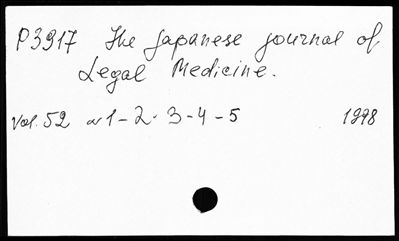 P3917 The Japanese journal of
Legal Medicine.
Vol. 52 N1-2-3-4-5 1998